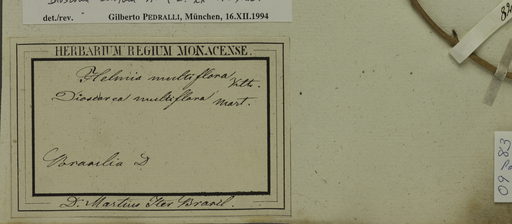 det./rev. Gilberto PEDRALLI, München, 16.XII.1994
HERBARIUM REGIUM MONACENSE.
Helmia multiflora Kth.
Dioscorea multiflora Mart.
Brasilia D
Dr. Martius Iter Brasil.
09 83